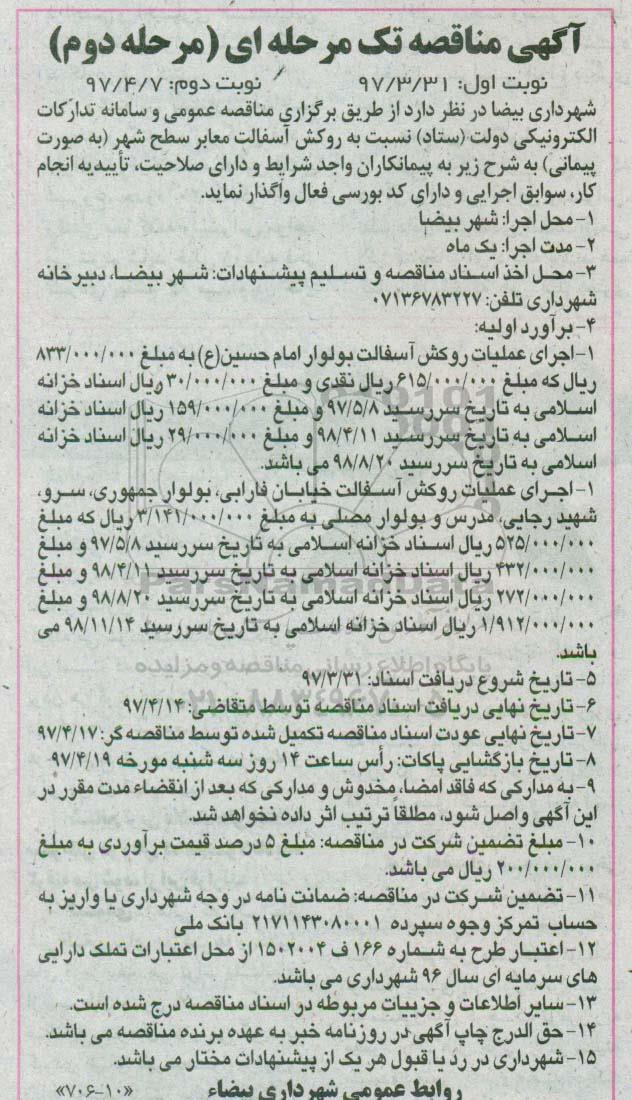 آگهی مناقصه تک مرحله ای (مرحله دوم)
نوبت اول: ۹۷/۳/۳۱ نوبت دوم: ۹۷/۴/۷
شهرداری بیضا در نظر دارد از طریق برگزاری مناقصه عمومی و سامانه تدارکات
الکترونیکی دولت (ستاد) نسبت به روکش آسفالت معابر سطح شهر (به صورت
پیمانی) به شرح زیر به پیمانکاران واجد شرایط و دارای صلاحیت، تأییدیه انجام
کار، سوابق اجرایی و دارای کد بورسی فعال واگذار نماید.
۱- محل اجرا: شهر بیضا
۲- مدت اجرا: یک ماه
۳- محل اخذ اسناد مناقصه و تسلیم پیشنهادات: شهر بیضا، دبیرخانه
شهرداری تلفن: ۰۷۱۳۶۷۸۳۲۲۷
۴- برآورد اولیه:
۱- اجرای عملیات روکش آسفالت بولوار امام حسین(ع) به مبلغ ۸۳۳/۰۰۰/۰۰۰
ریال که مبلغ ۶۱۵/۰۰۰/۰۰۰ ریال نقدی و مبلغ ۳۰/۰۰۰/۰۰۰ ریال اسناد خزانه
اسلامی به تاریخ سررسید ۹۷/۵/۸ و مبلغ ۱۵۹/۰۰۰/۰۰۰ ریال اسناد خزانه
اسلامی به تاریخ سررسید ۹۸/۴/۱۱ و مبلغ ۲۹/۰۰۰/۰۰۰ ریال اسناد خزانه
اسلامی به تاریخ سررسید ۹۸/۸/۲۰ می باشد.
۱- اجرای عملیات روکش آسفالت خیابان فارابی، بولوار جمهوری، سرو،
شهید رجایی، مدرس و بولوار مصلی به مبلغ ۳/۱۴۱/۰۰۰/۰۰۰ ریال که مبلغ
۵۲۵/۰۰۰/۰۰۰ ریال اسناد خزانه اسلامی به تاریخ سررسید ۹۷/۵/۸ و مبلغ
۴۳۲/۰۰۰/۰۰۰ ریال اسناد خزانه اسلامی به تاریخ سررسید ۹۸/۴/۱۱ و مبلغ
۲۷۲/۰۰۰/۰۰۰ ریال اسناد خزانه اسلامی به تاریخ سررسید ۹۸/۸/۲۰ و مبلغ
۱/۹۱۲/۰۰۰/۰۰۰ ریال اسناد خزانه اسلامی به تاریخ سررسید ۹۸/۱۱/۱۴ می
باشد.
۵- تاریخ شروع دریافت اسناد: ۹۷/۳/۳۱
۶- تاریخ نهایی دریافت اسناد مناقصه توسط متقاضی: ۹۷/۴/۱۴
۷- تاریخ نهایی عودت اسناد مناقصه تکمیل شده توسط مناقصه گر: ۹۷/۴/۱۷
۸- تاریخ بازگشایی پاکات: رأس ساعت ۱۴ روز سه شنبه مورخه ۹۷/۴/۱۹
۹- به مدارکی که فاقد امضا، مخدوش و مدارکی که بعد از انقضاء مدت مقرر در
این آگهی واصل شود، مطلقاً ترتیب اثر داده نخواهد شد.
۱۰- مبلغ تضمین شرکت در مناقصه: مبلغ ۵ درصد قیمت برآوردی به مبلغ
۲۰۰/۰۰۰/۰۰۰ ریال می باشد.
۱۱- تضمین شرکت در مناقصه: ضمانت نامه در وجه شهرداری یا واریز به
حساب تمرکز وجوه سپرده ۲۱۷۱۱۴۳۰۸۰۰۰۱ بانک ملی
۱۲- اعتبار طرح به شماره ۱۶۶ ف ۱۵۰۲۰۰۴ از محل اعتبارات تملک دارایی
های سرمایه ای سال ۹۶ شهرداری می باشد.
۱۳- سایر اطلاعات و جزییات مربوطه در اسناد مناقصه درج شده است.
۱۴- حق الدرج چاپ آگهی در روزنامه خبر به عهده برنده مناقصه می باشد.
۱۵- شهرداری در رد یا قبول هر یک از پیشنهادات مختار می باشد.
روابط عمومی شهرداری بیضاء «۷۰۶-۱۰»
ParsNamadData
پایگاه اطلاع رسانی مناقصه و مزایده